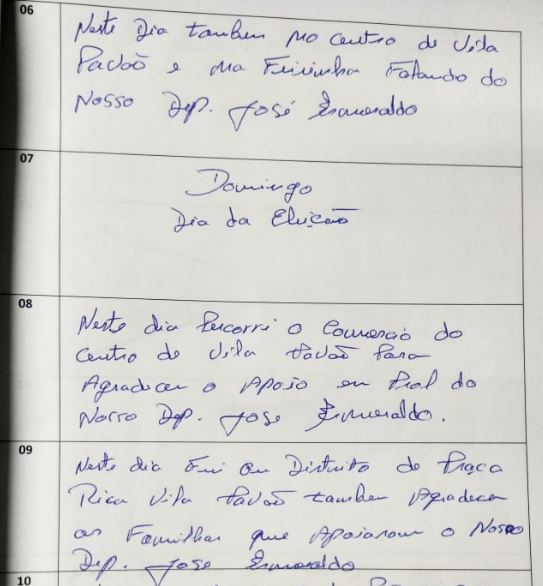 06
Neste Dia tambem no centro de Vila
Pavão e na Feirinha Falando do
Nosso Dep. José Esmeraldo
07
Domingo
Dia da Eleição
08
Neste dia Percorri o Comercio do
Centro de Vila Pavão Para
Agradecer o Apoio em Prol do
Nosso Dep. Jose Esmeraldo.
09
Neste dia Fui ou Distrito de Praça
Rica Vila Pavão tambem Agradecer
as Familhas que Apoiaram o Nosso
Dep. Jose Esmeraldo
10